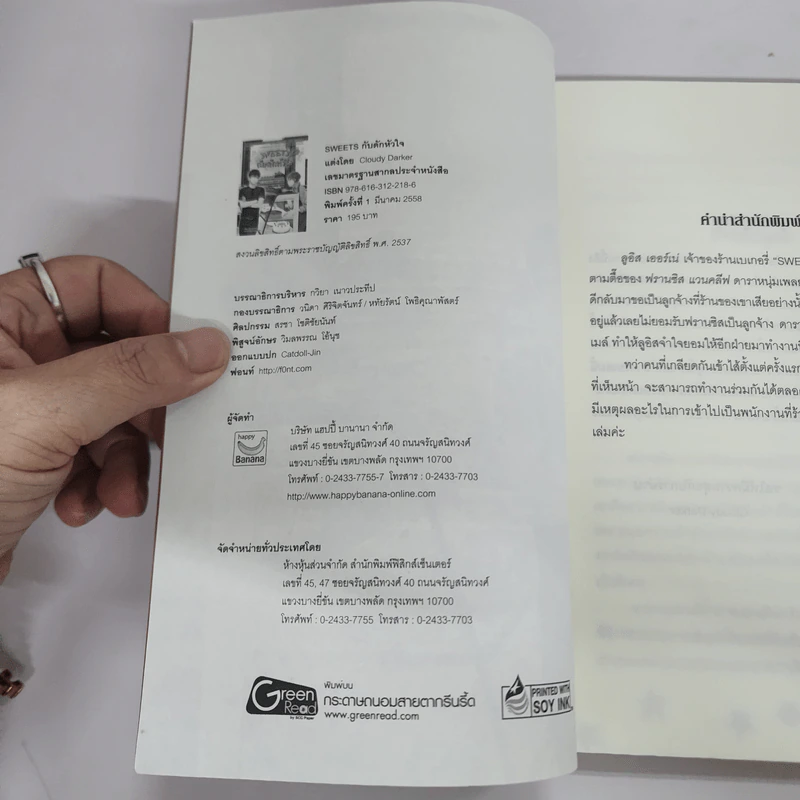 SWEETS กับดักหัวใจ
แต่งโดย Cloudy Darker
เลขมาตรฐานสากลประจำหนังสือ
ISBN 978-616-312-218-6
พิมพ์ครั้งที่ 1 มีนาคม 2558
ราคา 195 บาท
สงวนลิขสิทธิ์ตามพระราชบัญญัติลิขสิทธิ์ พ.ศ. 2537
บรรณาธิการบริหาร กวิยา เนาวประทีป
กองบรรณาธิการ วนิดา ศิริจิตจันทร์ / หทัยรัตน์ โพธิคุณาพัสตร์
ศิลปกรรม สรชา โชติชัยนันท์
พิสูจน์อักษร วิมลพรรณ โอ้นุช
ออกแบบปก Catdoll-Jin
ฟอนท์ http://f0nt.com
ผู้จัดทำ
happy
Banana
บริษัท แฮปปี้ บานานา จำกัด
เลขที่ 45 ซอยจรัญสนิทวงศ์ 40 ถนนจรัญสนิทวงศ์
แขวงบางยี่ขัน เขตบางพลัด กรุงเทพฯ 10700
โทรศัพท์ : 0-2433-7755-7 โทรสาร : 0-2433-7703
http://www.happybanana-online.com
จัดจำหน่ายทั่วประเทศโดย
ห้างหุ้นส่วนจำกัด สำนักพิมพ์ฟิสิกส์เซ็นเตอร์
เลขที่ 45, 47 ซอยจรัญสนิทวงศ์ 40 ถนนจรัญสนิทวงศ์
แขวงบางยี่ขัน เขตบางพลัด กรุงเทพฯ 10700
โทรศัพท์ : 0-2433-7755 โทรสาร : 0-2433-7703
Green
Read
by SCG Paper
พิมพ์บน
กระดาษถนอมสายตากรีนรี้ด
www.greenread.com
PRINTED WITH
SOY INK
คำนำสำนักพิมพ์
ลูอิส เฮอร์เน่ เจ้าของร้านเบเกอรี่ "SWE
ตามตื๊อของ ฟรานซิส แวนคลีฟ ดาราหนุ่มเพลย
ดีกลับมาขอเป็นลูกจ้างที่ร้านของเขาเสียอย่างนั้
อยู่แล้วเลยไม่ยอมรับฟรานซิสเป็นลูกจ้าง ดารา
เมล์ ทำให้ลูอิสจำใจยอมให้อีกฝ่ายมาทำงาน
ทว่าคนที่เกลียดกันเข้าไส้ตั้งแต่ครั้งแรก
ที่เห็นหน้า จะสามารถทำงานร่วมกันได้ตลอด
มีเหตุผลอะไรในการเข้าไปเป็นพนักงานที่ร้
เล่มค่ะ